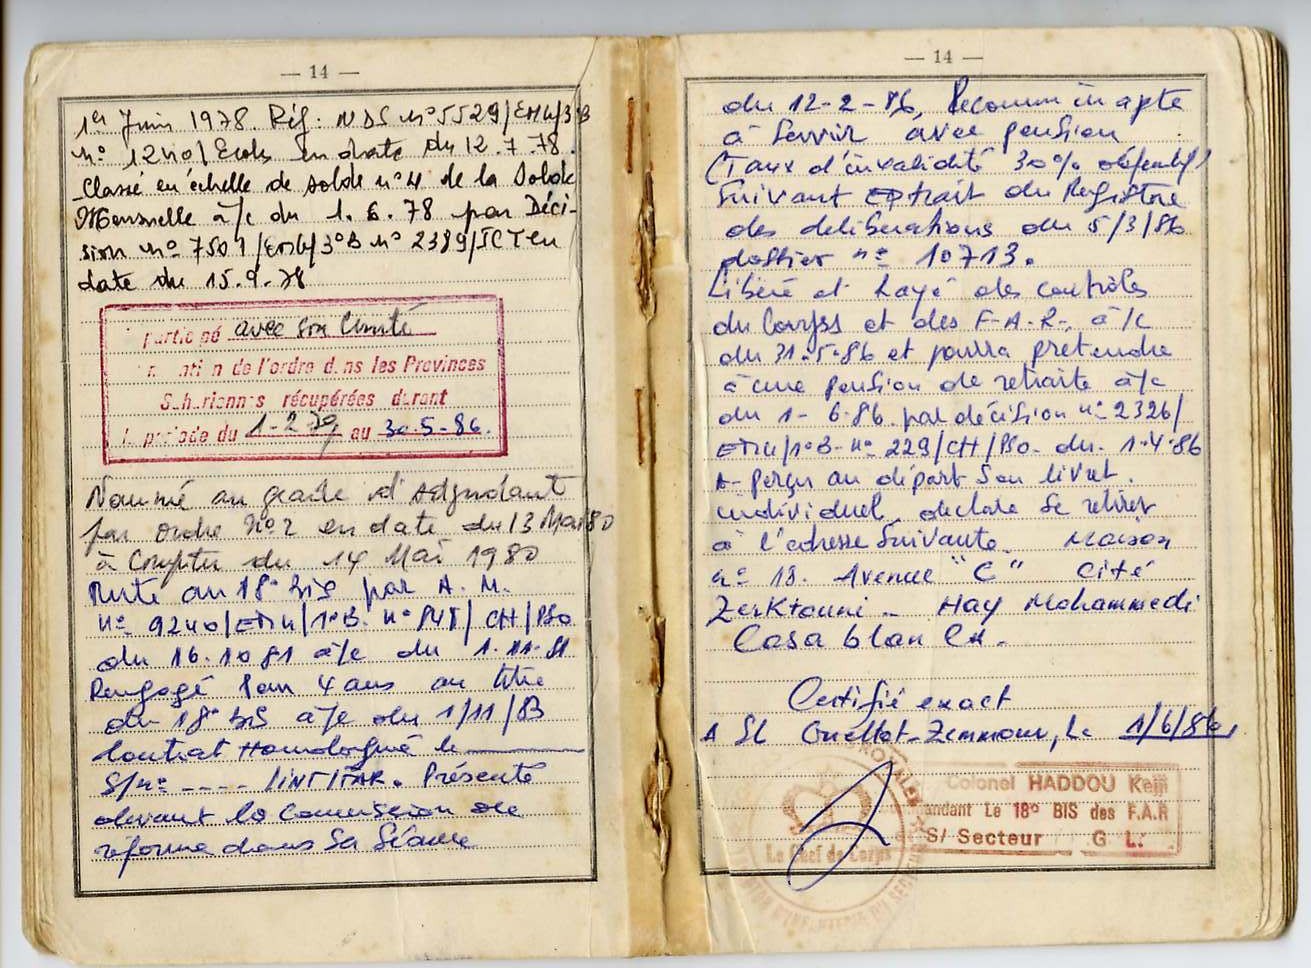 — 14 —
1er Juin 1978. Réf: NDS n° 5529/EMG/3°B
n° 1240/Ecols en date du 12.7.78.
Classé en échelle de solde n°4 de la Solde
Mensuelle a/c du 1.6.78 par Déci-
sion n° 7501/EMG/3°B n° 2389/ICT en
date du 15.9.78
participé avec son Unité
n de l'ordre dans les Provinces
Sahariennes récupérées durant
la période du 1-2-79 au 30.5.86.
Nommé au grade d'Adjudant
par ordre N°2 en date du 13 Mai 80
à Compter du 14 Mai 1980
Muté au 18° Bis par A. M.
n° 9240/EMG/1°B. n° CH/PSO
du 16.10 81 a/c du 1.11.81
Rengagé Pour 4 ans au titre
du 18° BIS a/c du 1/11/83
Contrat Homologué le
S/n° ---- /INT/FAR. Présenté
devant la Commission de
réforme dans Sa Séance
— 14 —
du 12-2-86, Reconnu in apte
à Servir avec pension
(Taux d'invalidité 30%
Suivant Extrait du Registre
des deliberations du 5/3/86
dossier n° 10713.
Libéré et Rayé des contrôles
du Corps et des F-A-R-, a/c
du 31-5-86 et pourra prétendre
à une pension de retraite a/c
du 1-6-86 par décision n° 2326/
EMG/1°B-n° 229/CH/PSO. du 1-4-86
A perçu au départ Son livret
individuel, declare Se retirer
à l'adresse Suivante Maison
n° 18. Avenue "C" Cité
Zerktouni - Hay Mohammedi
Casablanca.
Certifié exact
A Sl Gueltat-Zemmour, Le 1/6/86
Colonel HADDOU Kejji
andant Le 18° BIS des F.A.R
S/ Secteur G L:
Le Chef de Corps